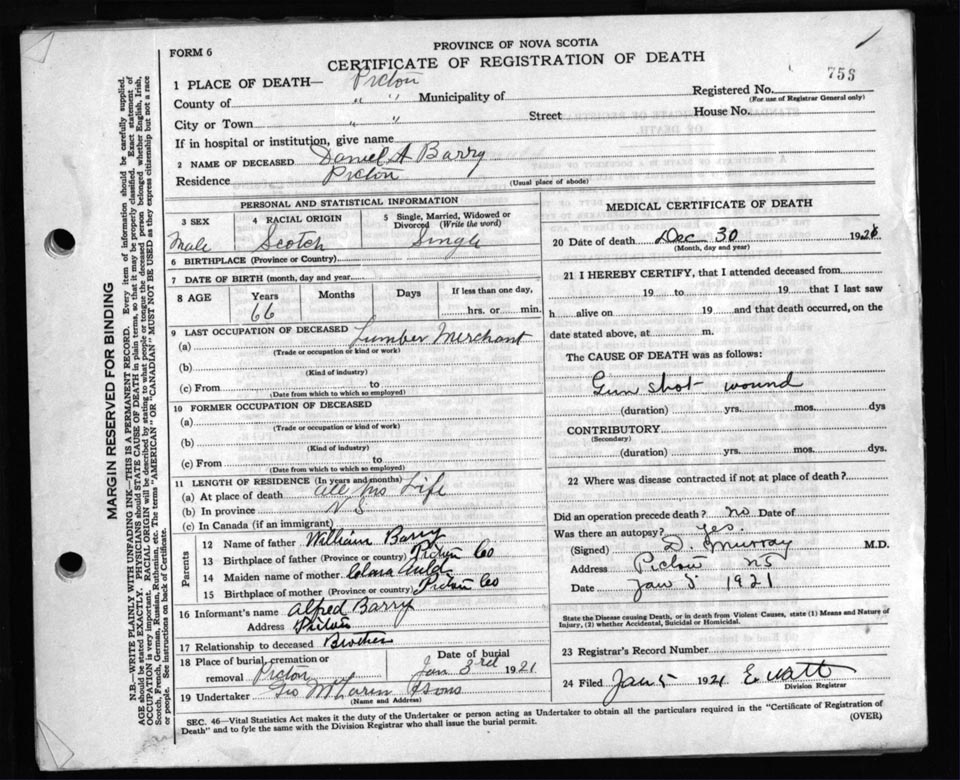 PROVINCE OF NOVA SCOTIA
FORM 6
CERTIFICATE OF REGISTRATION OF DEATH
756
1 PLACE OF DEATH— Pictou
County of " " Municipality of
Registered No.
(For use of Registrar General only)
City or Town " " Street House No.
If in hospital or institution, give name
2 NAME OF DECEASED Daniel A Barry
Residence Pictou
(Usual place of abode)
PERSONAL AND STATISTICAL INFORMATION
3 SEX Male
4 RACIAL ORIGIN Scotch
5 Single, Married, Widowed or Divorced (Write the word) Single
6 BIRTHPLACE (Province or Country)
7 DATE OF BIRTH (month, day and year)
8 AGE Years Months Days If less than one day,
66 hrs. or min.
9 LAST OCCUPATION OF DECEASED
(a) Lumber Merchant
(Trade or occupation or kind or work)
(b)
(Kind of industry)
(c) From to
(Date from which to which so employed)
10 FORMER OCCUPATION OF DECEASED
(a)
(Trade or occupation or kind of work)
(b)
(Kind of industry)
(c) From to
(Date from which to which so employed)
11 LENGTH OF RESIDENCE (In years and months)
(a) At place of death all his Life
(b) In province
(c) In Canada (if an immigrant)
Parents
12 Name of father William Barry
13 Birthplace of father (Province or country) Pictou Co
14 Maiden name of mother Clara Auld
15 Birthplace of mother (Province or country) Pictou Co
16 Informant's name Alfred Barry
Address Pictou
17 Relationship to deceased Brother
18 Place of burial, cremation or removal Pictou
Date of burial Jan 3rd 1921
19 Undertaker Geo & Sons
(Name and Address)
MEDICAL CERTIFICATE OF DEATH
20 Date of death Dec 30 192
(Month, day and year)
21 I HEREBY CERTIFY, that I attended deceased from
19 to 19 that I last saw
h alive on 19 and that death occurred, on the
date stated above, at m.
The CAUSE OF DEATH was as follows:
Gun shot wound
(duration) yrs. mos. dys
CONTRIBUTORY
(Secondary)
(duration) yrs. mos. dys.
22 Where was disease contracted if not at place of death?
Did an operation precede death? no Date of
Was there an autopsy? yes.
(Signed) D. Murray M.D.
Address Pictou NS
Date Jan 5 1921
State the Disease causing Death, or in death from Violent Causes, state (1) Means and Nature of
Injury, (2) whether Accidental, Suicidal or Homicidal.
23 Registrar's Record Number
24 Filed Jan 5 1921 E Watt
Division Registrar
SEC. 46—Vital Statistics Act makes it the duty of the Undertaker or person acting as Undertaker to obtain all the particulars required in the "Certificate of Registration of
Death" and to fyle the same with the Division Registrar who shall issue the burial permit.
(OVER)
MARGIN RESERVED FOR BINDING
N.B.—WRITE PLAINLY WITH UNFADING INK—THIS IS A PERMANENT RECORD. Every item of information should be carefully supplied.
AGE should be stated EXACTLY. PHYSICIANS should STATE CAUSE OF DEATH in plain terms, so that it may be properly classified. Exact statement of
OCCUPATION is very important. RACIAL ORIGIN will be described by stating to what people or tongue the deceased person belonged whether English, Irish,
Scotch, French, German, Russian, Ruthenian, etc. The terms "AMERICAN" OR "CANADIAN" MUST NOT BE USED as they express citizenship but not a race
or people. See instructions on back of Certificate.